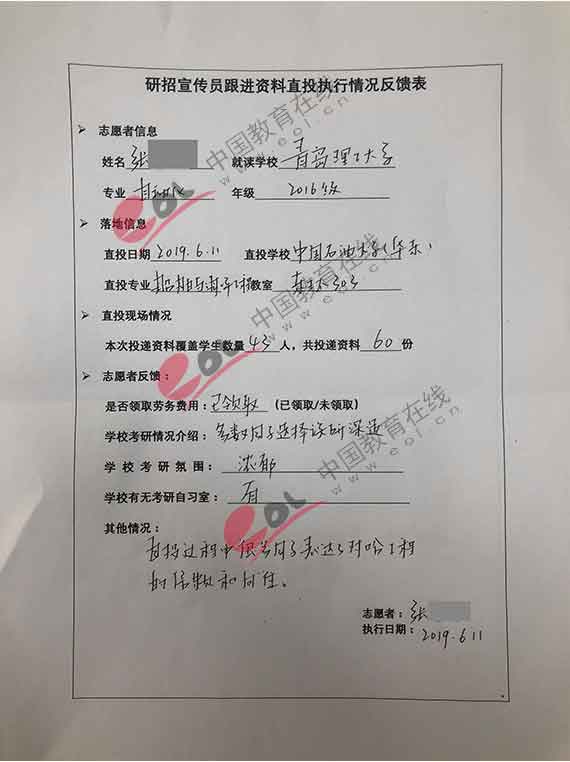 研招宣传员跟进资料直投执行情况反馈表
志愿者信息
姓名 张 就读学校 青岛理工大学
专业 自动化 年级 2016级
落地信息
直投日期 2019.6.11 直投学校 中国石油大学(华东)
直投专业 船舶与海洋工程 教室 303
直投现场情况
本次投递资料覆盖学生数量 43 人，共投递资料 60 份
志愿者反馈：
是否领取劳务费用：已领取 (已领取/未领取)
学校考研情况介绍：多数同学选择读研深造
学校考研氛围：浓郁
学校有无考研自习室：有
其他情况：
直投过程中很多同学表达了对哈工程
的信赖和向往。
志愿者：张
执行日期：2019.6.11
eol 中国教育在线
www.eol.cn
eol 中国教育在线
www.eol.cn
eol 中国教育在线
www.eol.cn